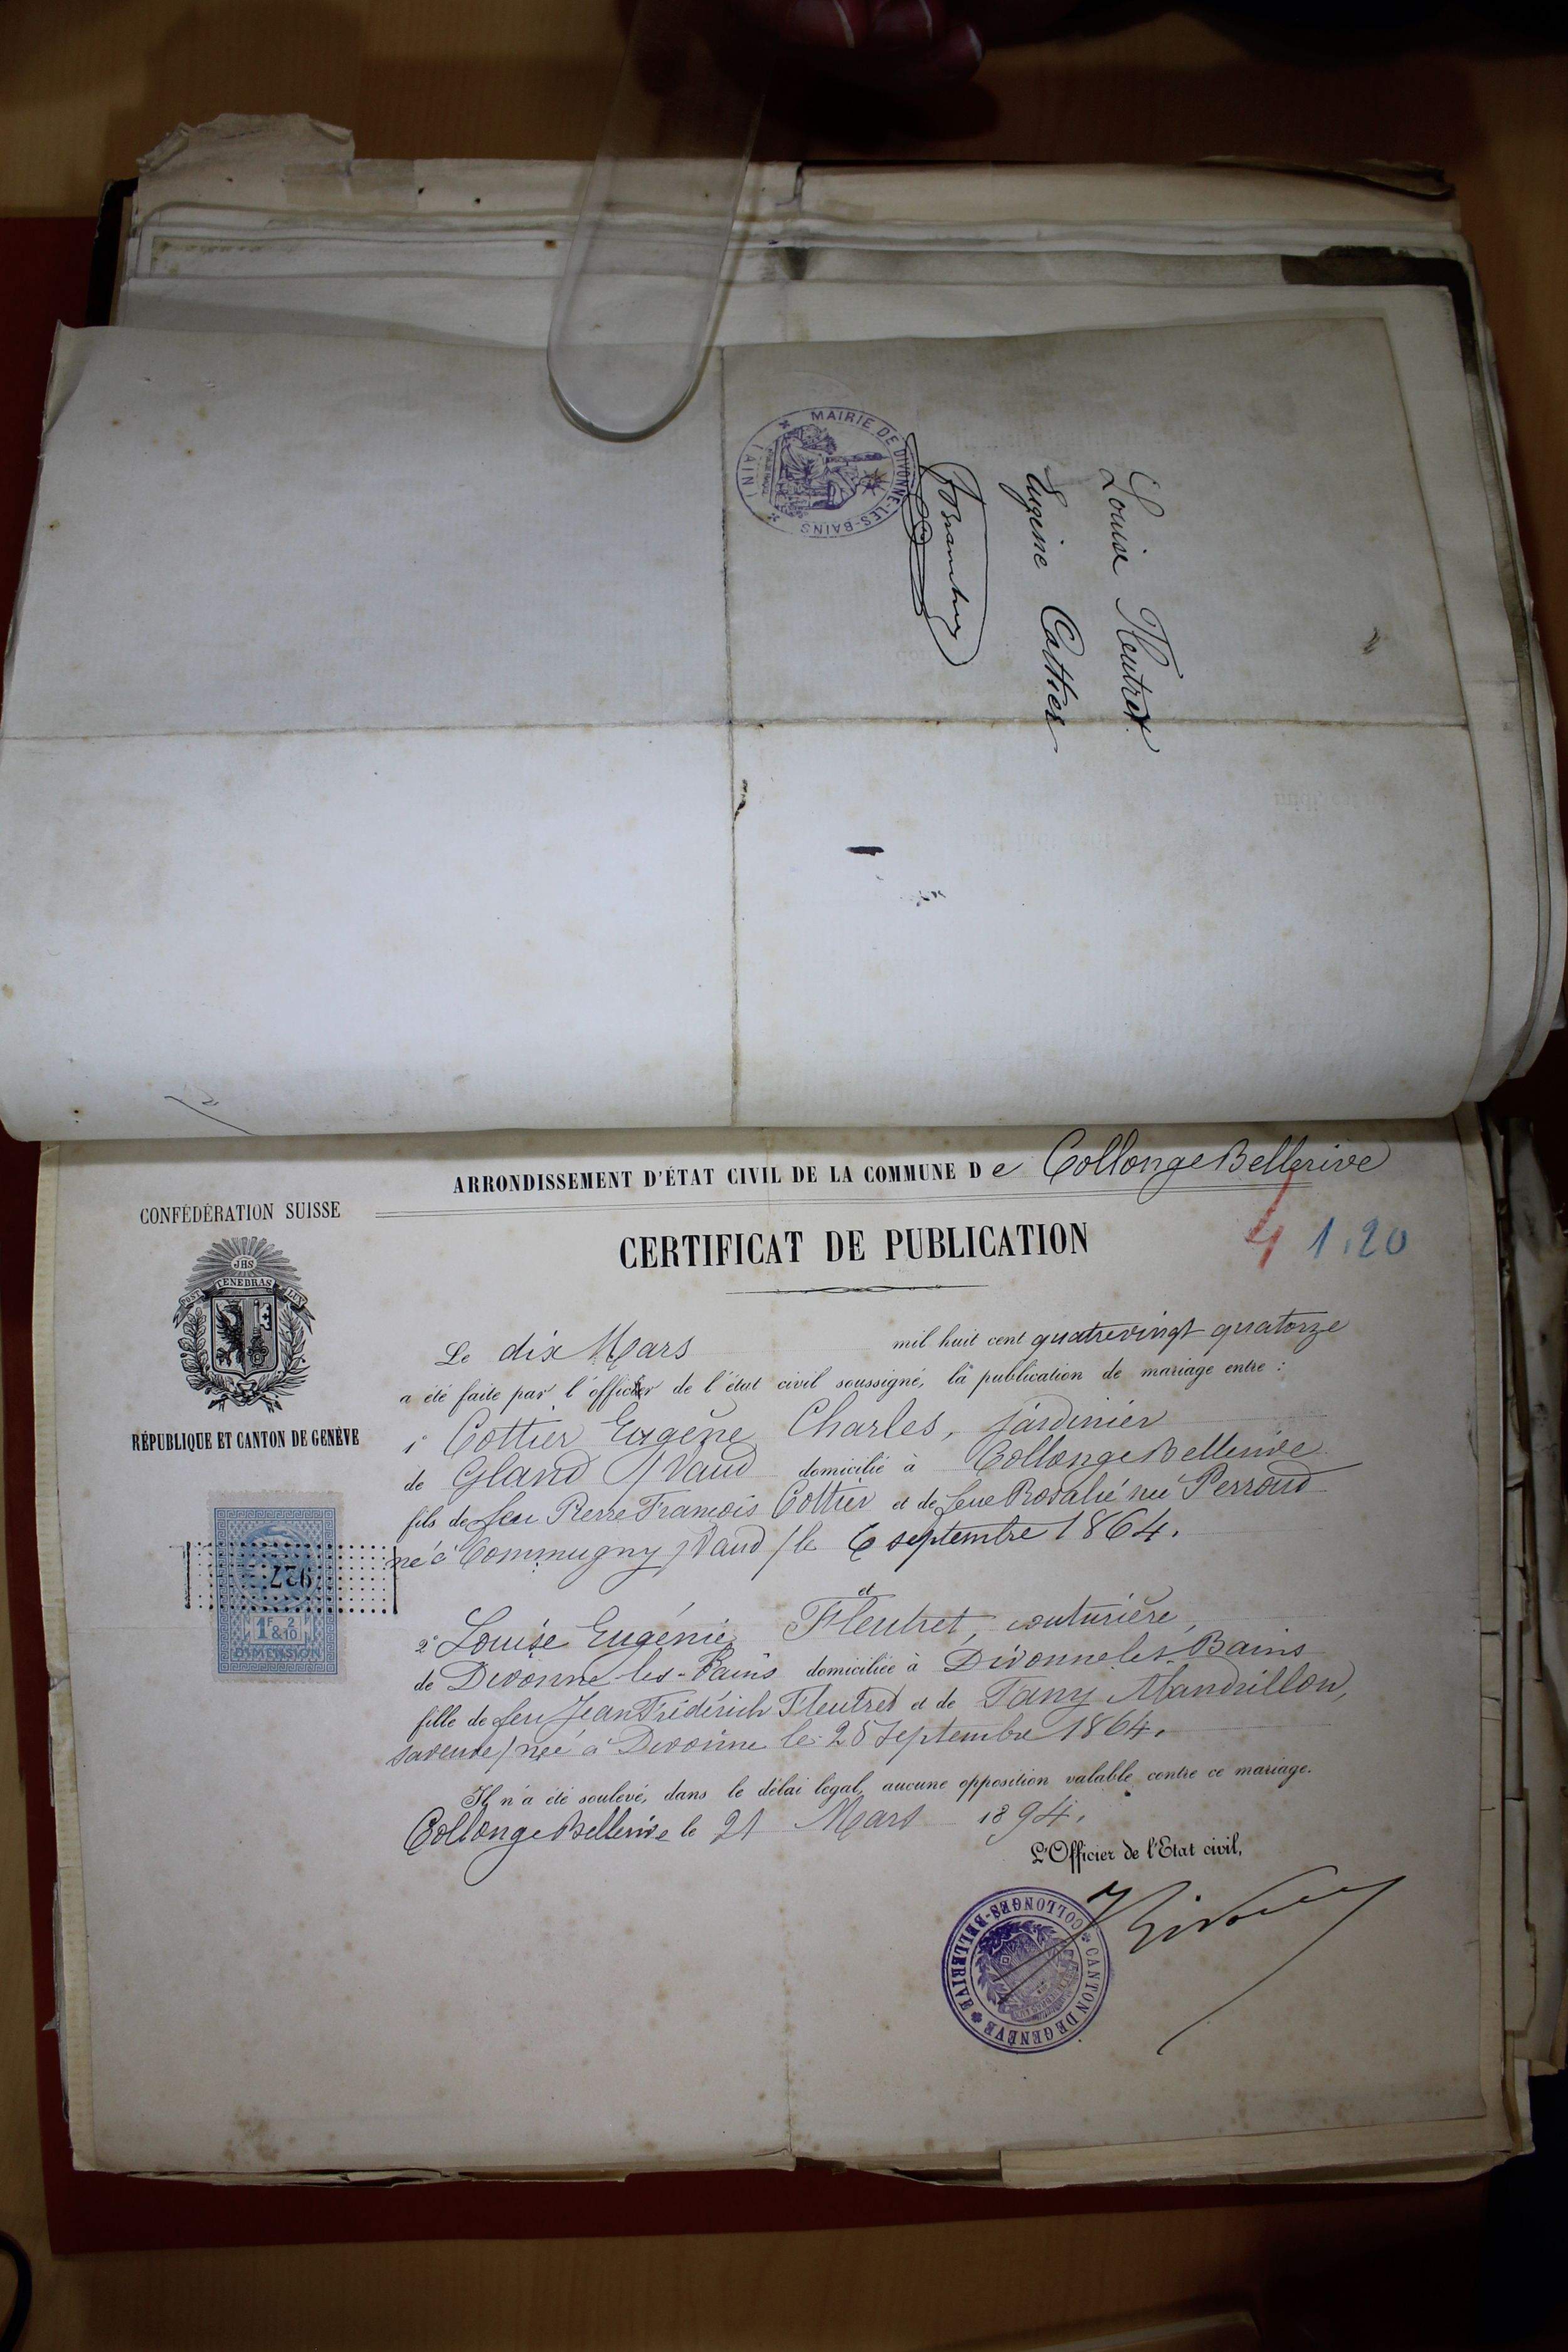 Louise Fleutret
Eugène Cottier
MAIRIE DE DIVONNE-LES-BAINS
(AIN)
ARRONDISSEMENT D'ÉTAT CIVIL DE LA COMMUNE De Collonge Bellerive
CONFÉDÉRATION SUISSE
4 1.20
CERTIFICAT DE PUBLICATION
JHS
POST TENEBRAS LUX
RÉPUBLIQUE ET CANTON DE GENÈVE
Le dix Mars mil huit cent quatrevingt quatorze
a été faite par l'officier de l'état civil soussigné, la publication de mariage entre :
1° Cottier Eugène Charles, jardinier
de Gland / Vaud domicilié à Collonge Bellerive
fils de feu Pierre François Cottier et de feue Rosalie née Perroud
né à Commugny / Vaud / le 6 septembre 1864.
et
2° Louise Eugénie Fleutret, couturière,
de Divonne-les-Bains domiciliée à Divonne les Bains
fille de feu Jean Fridérich Fleutret et de Fany Mandrillon,
sa veuve / née à Divonne le 25 Septembre 1864.
Il n'a été soulevé, dans le délai légal, aucune opposition valable contre ce mariage.
Collonge Bellerive le 21 Mars 1894.
L'Officier de l'Etat civil,
927
1F & 2/10
DIMENSION
CANTON DE GENÈVE
COLLONGES-BELLERIVE